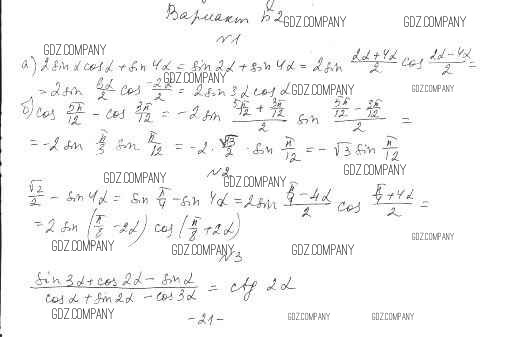 Вариант Б2
GDZ.COMPANY GDZ.COMPANY
№1
GDZ.COMPANY
а) 2 sin α cos α + sin 4α = sin 2α + sin 4α = 2 sin (2α+4α)/2 cos (2α-4α)/2 =
GDZ.COMPANY
= 2 sin 6α/2 cos -2α/2 = 2 sin 3α cos α GDZ.COMPANY GDZ.COMPANY
б) cos 5π/12 - cos 3π/12 = -2 sin (5π/12 + 3π/12)/2 sin (5π/12 - 3π/12)/2 =
= -2 sin π/3 sin π/12 = -2 · √3/2 · sin π/12 = -√3 sin π/12
№2 GDZ.COMPANY
GDZ.COMPANY GDZ.COMPANY
√2/2 - sin 4α = sin π/4 - sin 4α = 2 sin (π/4 - 4α)/2 cos (π/4 + 4α)/2 =
= 2 sin (π/8 - 2α) cos (π/8 + 2α) GDZ.COMPANY
GDZ.COMPANY GDZ.COMPANY GDZ.COMPANY
№3
(sin 3α + cos 2α - sin α)/(cos α + sin 2α - cos 3α) = ctg 2α
GDZ.COMPANY -21- GDZ.COMPANY GDZ.COMPANY